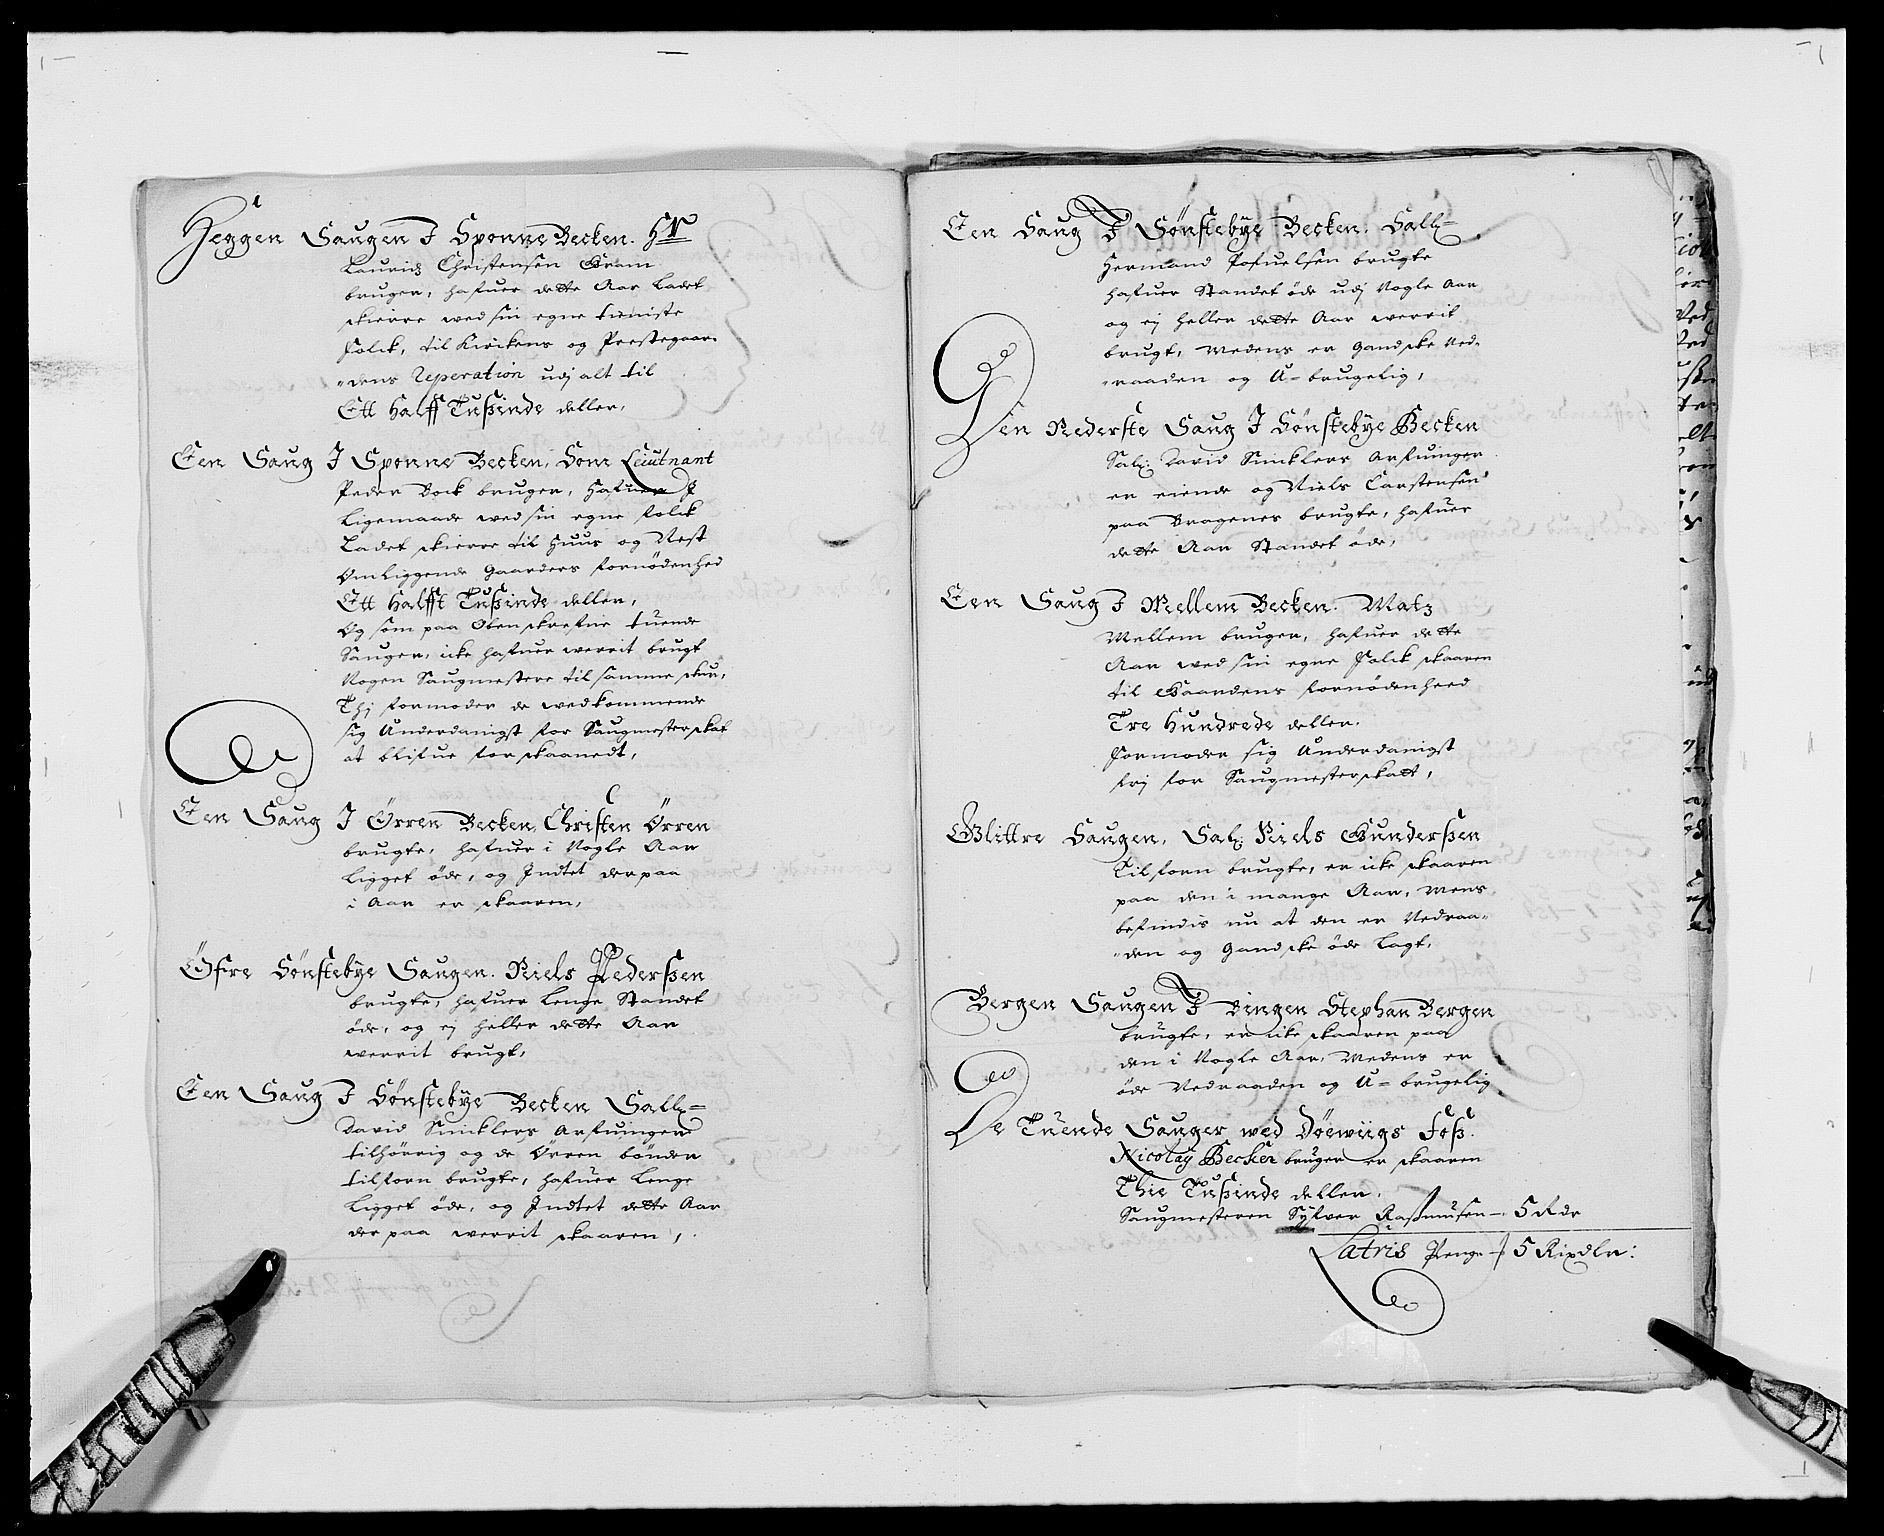 Heggen Saugen J Sponne Becken. Hr
Lauridz Christensen Gram
bruger, hafuer dette Aar Ladet
skierre wed sin egne tieniste
folck, til Kirckens og Prestegaar-
"dens Reperation udj alt til
Ett Halff Tußinde deller,
Een Saug J Sponne Becken, Som Leiutnant
Peder Bock bruger, Hafuer J
Ligemaade wed sin egne folck
Ladet skierre til Huus og Nest
Omliggende Gaarders fornødenhed
Ett Halfft Tußinde deller,
Og som paa Obenskrefne tuende
Sauger, icke hafuer werrit brugt
Nogen Saugmestere til samme skur,
Thj formoder de wedkommende
sig Underdanigst for Saugmesterskat
at blifue forskaanedt,
Een Saug J Ørren Becken, Christen Ørren
brugte, hafuer i Nogle Aar
Ligget øde, og Indtet der paa
i Aar er skaaren,
Øfre Sønstebye Saugen. Niels Pederßen
brugte, hafuer Lenge Standet
øde, og ej heller dette Aar
werrit brugt,
Een Saug J Sønstebye Becken Sall:
David Sincklers Arfuinger
tilhørrig og de Ørren bønder
tilforn brugte, hafuer Lenge
Ligget øde, og Indtet dette Aar
der paa werrit skaaren,
Een Saug J Sønstebye Becken. Sall:
Hermand Pofuelsen brugte
hafuer Standet øde udj Nogle Aar
og ej heller dette Aar werrit
brugt, Medens er Gandske Ned-
"raaden og U-brugelig,
Den Nederste Saug J Sønstebye Becken
Sal: David Sincklers Arfuinger
er eiende og Niels Carstensen
paa Bragenes brugte, hafuer
dette Aar Standet øde,
Een Saug J Mellem Becken. Matz
Mellem bruger, hafuer dette
Aar wed sin egne folck skaaren
til Gaardens fornødenheed
Tre Hundrede deller.
formoder sig Underdanigst
frj for Saugmesterskatt,
Glittre Saugen, Sal: Niels Gunderßen
Tilforn brugte, er icke skaaren
paa den i mange Aar, Mens
befindis nu at den er Nedraa-
"den og Gandske øde Lagt,
Bergen Saugen J Bingen Stephan Bergen
brugte, er icke skaaren paa
den i Nogle Aar, Medens er
øde Nedraaden og U-brugelig
De Tuende Sauger wed Døewiigs Foß.
Nicolay Becker bruger er skaaren
Thie Tußinde deller.
Saugmesteren Sylver Raßmusen - 5 Rdr
Latris Penge - 5 Rixdlr: